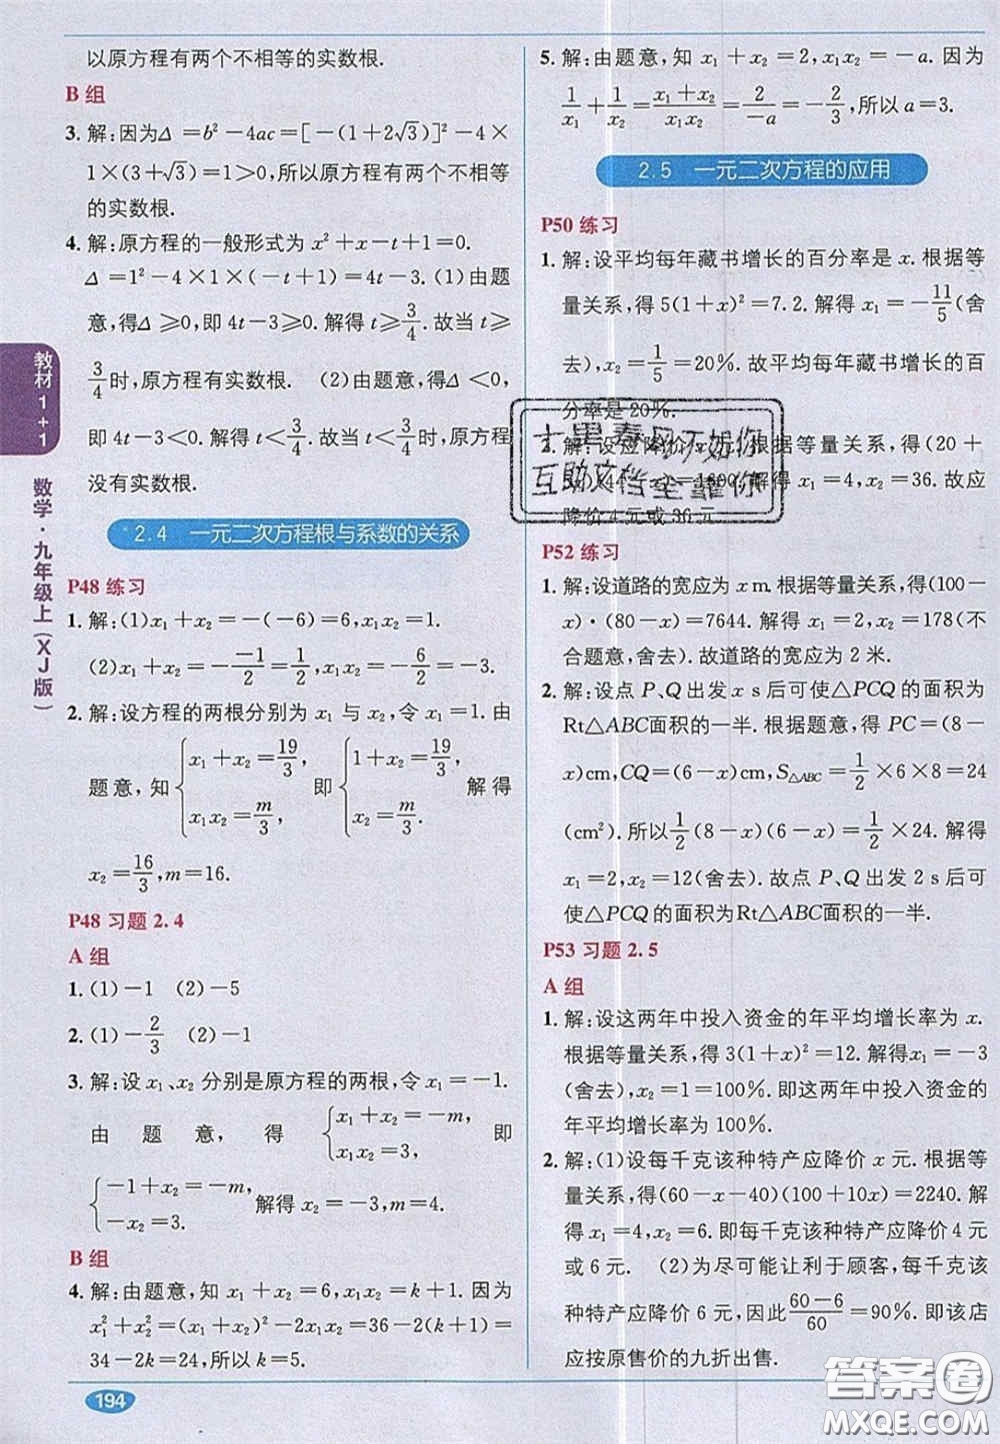 以原方程有两个不相等的实数根.
B 组
3. 解:因为Δ=b²-4ac=[-(1+2√3)]²-4×
1×(3+√3)=1>0,所以原方程有两个不相等
的实数根.
4. 解:原方程的一般形式为 x²+x-t+1=0.
Δ=1²-4×1×(-t+1)=4t-3.(1)由题
意,得Δ≥0,即 4t-3≥0.解得 t≥3/4.故当 t≥
3/4时,原方程有实数根. (2)由题意,得Δ<0,
即 4t-3<0.解得 t<3/4.故当 t<3/4时,原方程
没有实数根.
2.4 一元二次方程根与系数的关系
P48 练习
1. 解:(1)x₁+x₂=-(-6)=6,x₁x₂=1.
(2)x₁+x₂=-(-1/2)=1/2,x₁x₂=-6/2=-3.
2. 解:设方程的两根分别为 x₁ 与 x₂,令 x₁=1.由
题意,知{x₁+x₂=19/3, x₁x₂=m/3, 即{1+x₂=19/3, x₂=m/3. 解得
x₂=16/3,m=16.
P48 习题 2.4
A 组
1. (1)-1 (2)-5
2. (1)-2/3 (2)-1
3. 解:设 x₁、x₂ 分别是原方程的两根,令 x₁=-1.
由题意,得{x₁+x₂=-m, x₁x₂=3, 即
{-1+x₂=-m, -x₂=3. 解得 x₂=-3,m=4.
B 组
4. 解:由题意,知 x₁+x₂=6,x₁x₂=k+1.因为
x₁²+x₂²=(x₁+x₂)²-2x₁x₂=36-2(k+1)=
34-2k=24,所以 k=5.
194
教材 1+1
数学·九年级上(XJ版)
5. 解:由题意,知 x₁+x₂=2,x₁x₂=-a.因为
1/x₁+1/x₂=(x₁+x₂)/(x₁x₂)=2/(-a)=-2/3,所以 a=3.
2.5 一元二次方程的应用
P50 练习
1. 解:设平均每年藏书增长的百分率是 x.根据等
量关系,得 5(1+x)²=7.2.解得 x₁=-11/5(舍
去),x₂=1/5=20%.故平均每年藏书增长的百
分率是 20%.
2. 解:设应降价 x 元.根据等量关系,得(20+
x)=1600.解得 x₁=4,x₂=36.故应
降价 4 元或 36 元.
P52 练习
1. 解:设道路的宽应为 x m.根据等量关系,得(100-
x)·(80-x)=7644.解得 x₁=2,x₂=178(不
合题意,舍去).故道路的宽应为 2 米.
2. 解:设点 P、Q 出发 x s 后可使△PCQ 的面积为
Rt△ABC面积的一半.根据题意,得 PC=(8-
x)cm,CQ=(6-x)cm,S△ABC=1/2×6×8=24
(cm²).所以1/2(8-x)(6-x)=1/2×24.解得
x₁=2,x₂=12(舍去).故点 P、Q 出发 2 s 后可
使△PCQ 的面积为Rt△ABC面积的一半.
P53 习题 2.5
A 组
1. 解:设这两年中投入资金的年平均增长率为 x.
根据等量关系,得 3(1+x)²=12.解得x₁=-3
(舍去),x₂=1=100%.即这两年中投入资金的
年平均增长率为 100%.
2. 解:(1)设每千克该种特产应降价 x 元.根据等
量关系,得(60-x-40)(100+10x)=2240.解
得 x₁=4,x₂=6.即每千克该种特产应降价 4 元
或 6 元. (2)为尽可能让利于顾客,每千克该
种特产应降价 6 元,因此(60-6)/60=90%.即该店
应按原售价的九折出售.
十里春风不如你
互助文档全靠你
答案圈
MXQE.COM